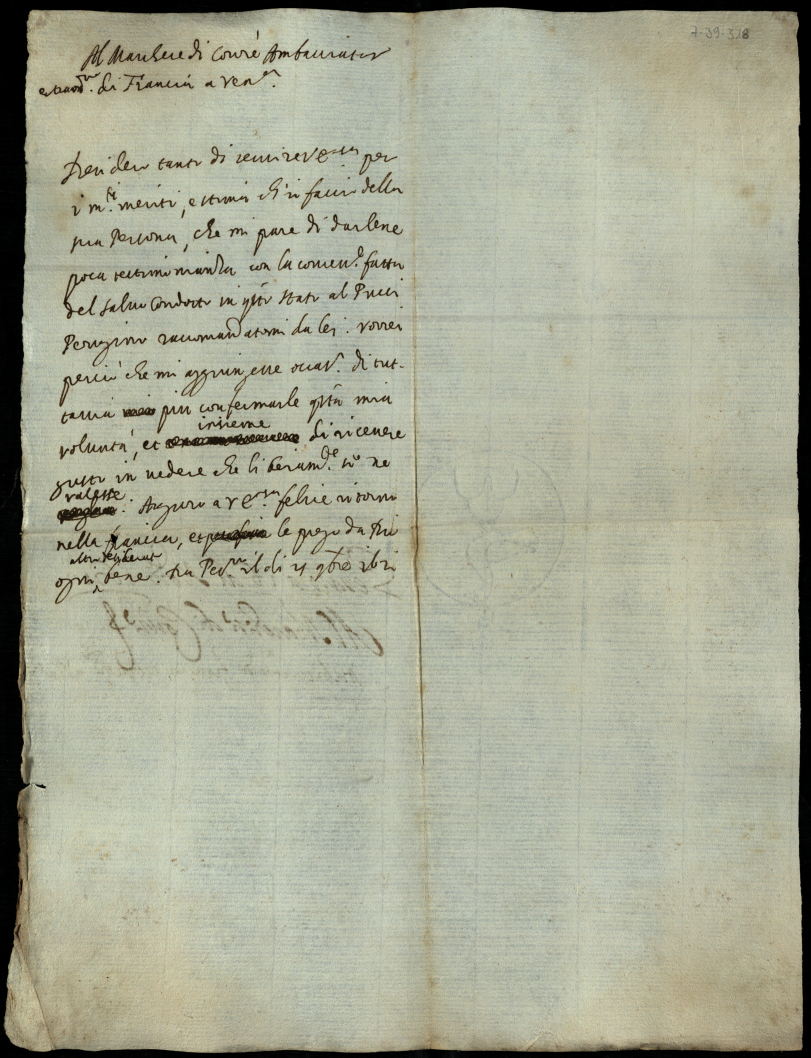 7-39-318
Al Marchese di Covré Ambasciator
extraord.rio di Francia a Ven.a
Desidero tanto di servire V. E. per
i m.ti meriti, e stima ch'io faccio della
sua Persona, che mi pare di darlene
poca testimonianza con la conces.e fatta
del salvo condotto in q.to stato al Pucci
Perugino raccomandatomi da lei. Vorrei
perciò che mi aggiungesse occas.e di tut-
tavia più confermarle q.ta mia
volontà, et insieme di ricevere
gusto in vedere che liberam.te se ne
valesse. Auguro a V. E. felice ritorno
nella Francia, et le prego da Dio
ogni altro desiderato bene. Da il di 21 9bre